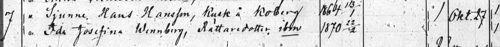 7 " Sjunne, Hans Hansson, Kusk å Koberg 1864 13/1 1 Okt. 27 1
" Ida Josefina Wennberg, Rättaredotter, ibm 1870 22/2